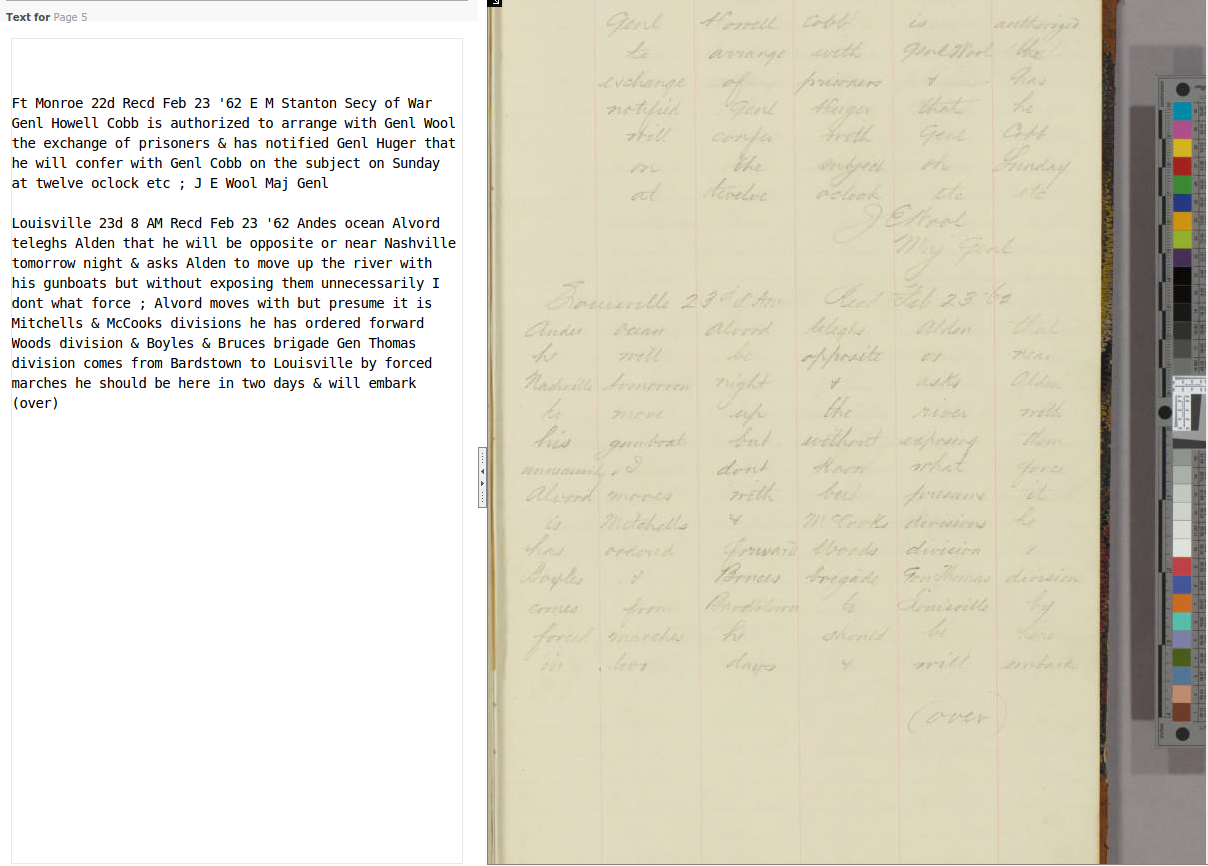 Text for Page 5
Ft Monroe 22d Recd Feb 23 '62 E M Stanton Secy of War
Genl Howell Cobb is authorized to arrange with Genl Wool
the exchange of prisoners & has notified Genl Huger that
he will confer with Genl Cobb on the subject on Sunday
at twelve oclock etc ; J E Wool Maj Genl
Louisville 23d 8 AM Recd Feb 23 '62 Andes ocean Alvord
teleghs Alden that he will be opposite or near Nashville
tomorrow night & asks Alden to move up the river with
his gunboats but without exposing them unnecessarily I
dont what force ; Alvord moves with but presume it is
Mitchells & McCooks divisions he has ordered forward
Woods division & Boyles & Bruces brigade Gen Thomas
division comes from Bardstown to Louisville by forced
marches he should be here in two days & will embark
(over)
Genl Howell Cobb is authorized
to arrange with Genl Wool the
exchange of prisoners & has
notified Genl Huger that he
will confer with Genl Cobb
on the subject on Sunday
at twelve oclock etc etc
J E Wool
Maj Genl
Louisville 23d 8 Am Recd Feb 23 '62
Andes ocean Alvord teleghs Alden that
he will be opposite or near
Nashville tomorrow night & asks Alden
to move up the river with
his gunboats but without exposing them
unnecessarily I dont know what force
Alvord moves with but presume it
is Mitchells & McCooks divisions he
has ordered forward Woods division &
Boyles & Bruces brigade Thomas division
comes from Bardstown to Louisville by
forced marches he should be here
in two days & will embark
(over)